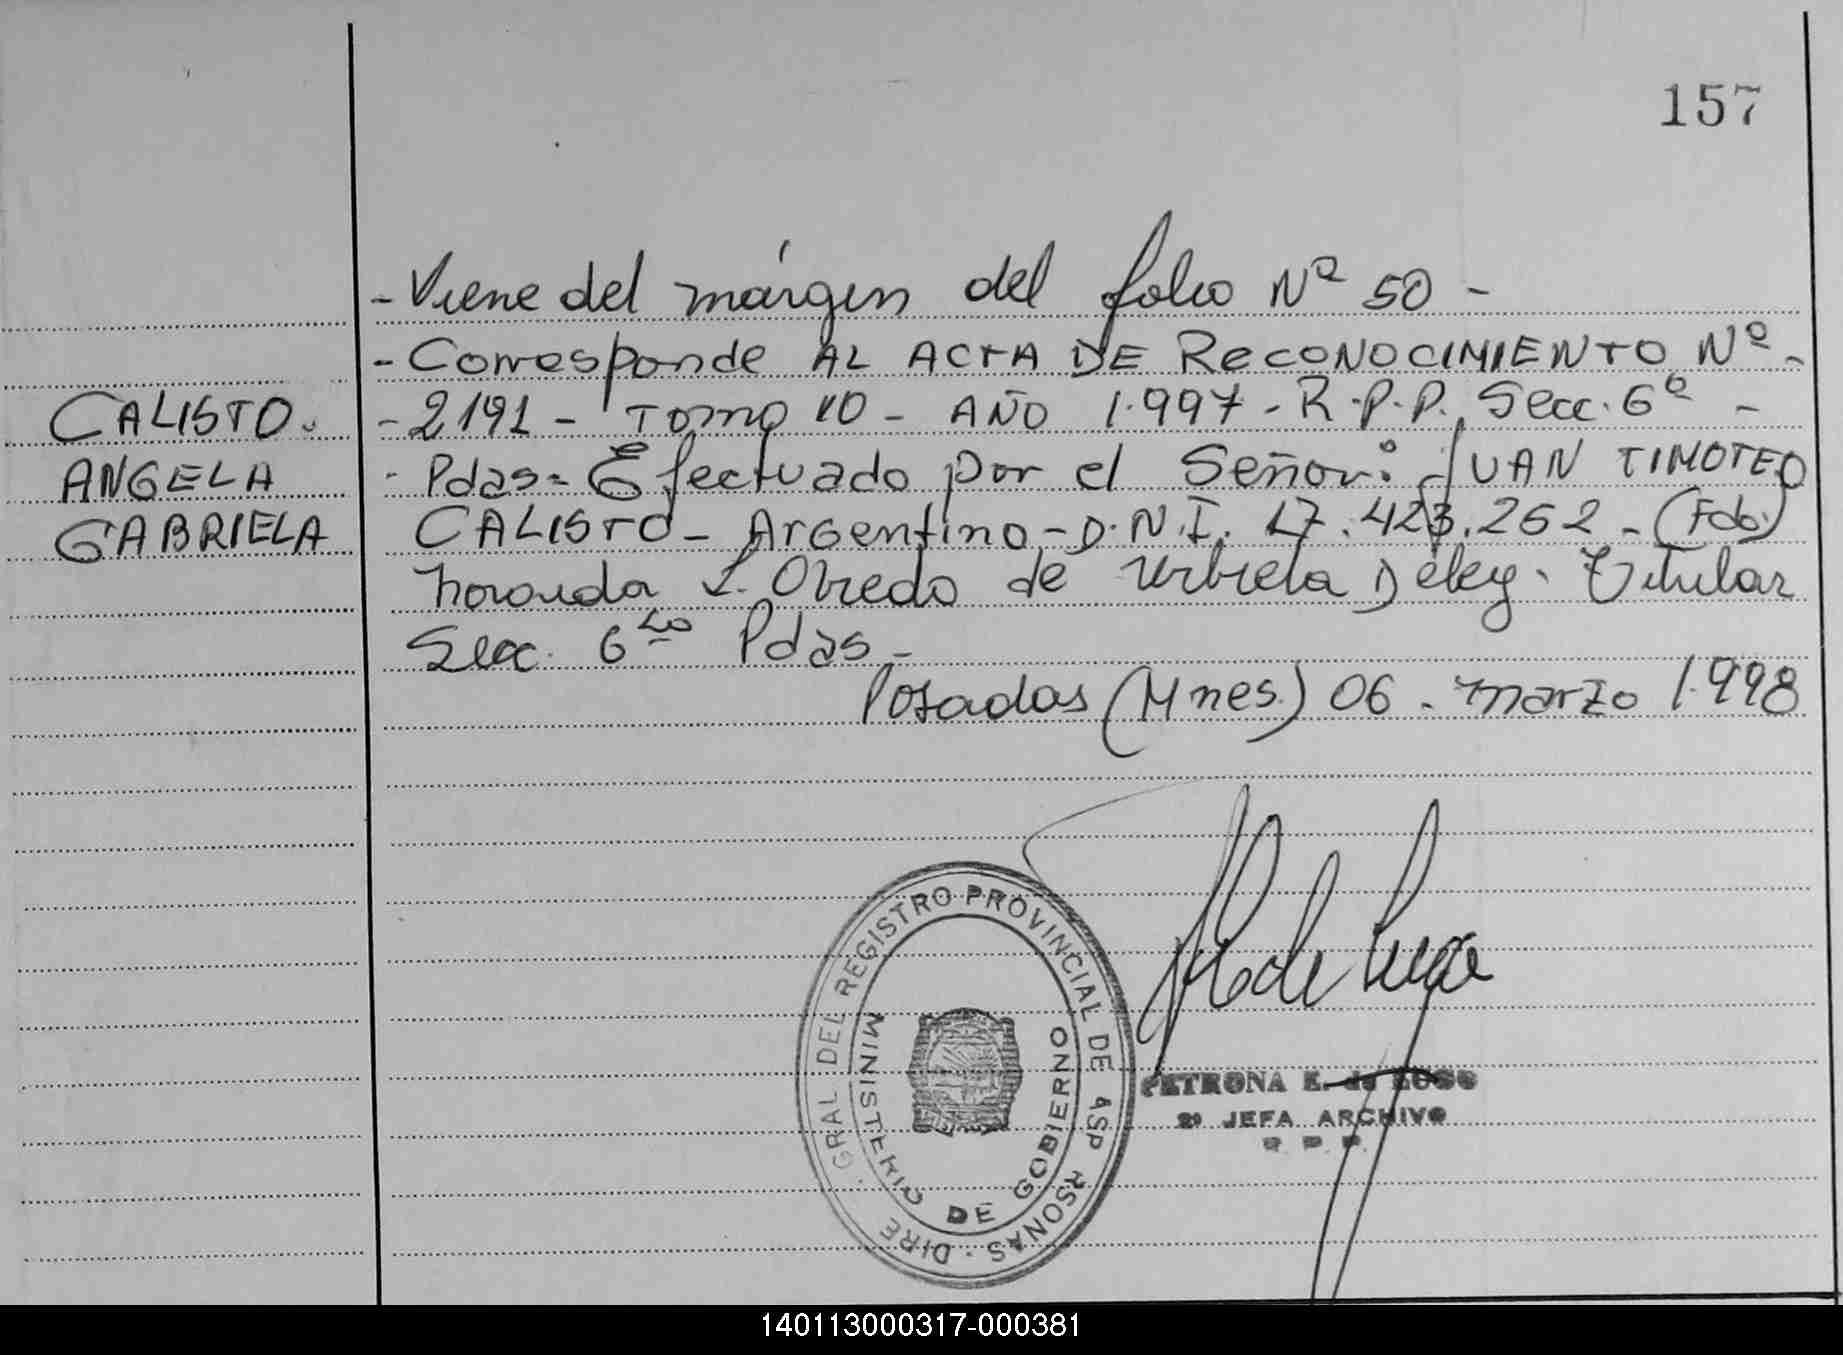 157
- Viene del márgen del folio Nº 50 -
- Corresponde AL ACTA DE RECONOCIMIENTO Nº -
CALISTO. - 2191 - TOMO 10 - AÑO 1.997 - R.P.P. Secc. 6º -
ANGELA - Pdas - Efectuado por el Señor: JUAN TIMOTEO
GABRIELA CALISTO - Argentino - D.N.I. 17.423.262 - (Fdo)
L. Obredo de Urbieta Deley. Titular
Secc. 6ta Pdas -
Posadas (Mnes.) 06 - marzo 1.998
GRAL DEL REGISTRO PROVINCIAL DE
MINISTERIO DE GOBIERNO
PETRONA E. de LUGO
JEFA ARCHIVO
R. P. P.
140113000317-000381